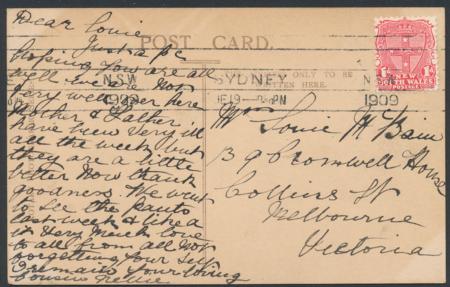 Dear Louie
Just a p.c
hoping you are all
well. we are not
very well over here
Mother & Father
have been very ill
all the week but
they are a little
better now thank
goodness. We went
to see the Panto
last week & liked
it very much love
to all from all not
forgetting your self
I remain your loving
cousin Nellie
POST CARD.
ONLY TO BE
WRITTEN HERE.
N.S.W.
1909
SYDNEY
PM
1909
NEW
SOUTH WALES
1d 1d
POSTAGE
Louie McBain
39 Cromwell House
Collins St
Melbourne
Victoria